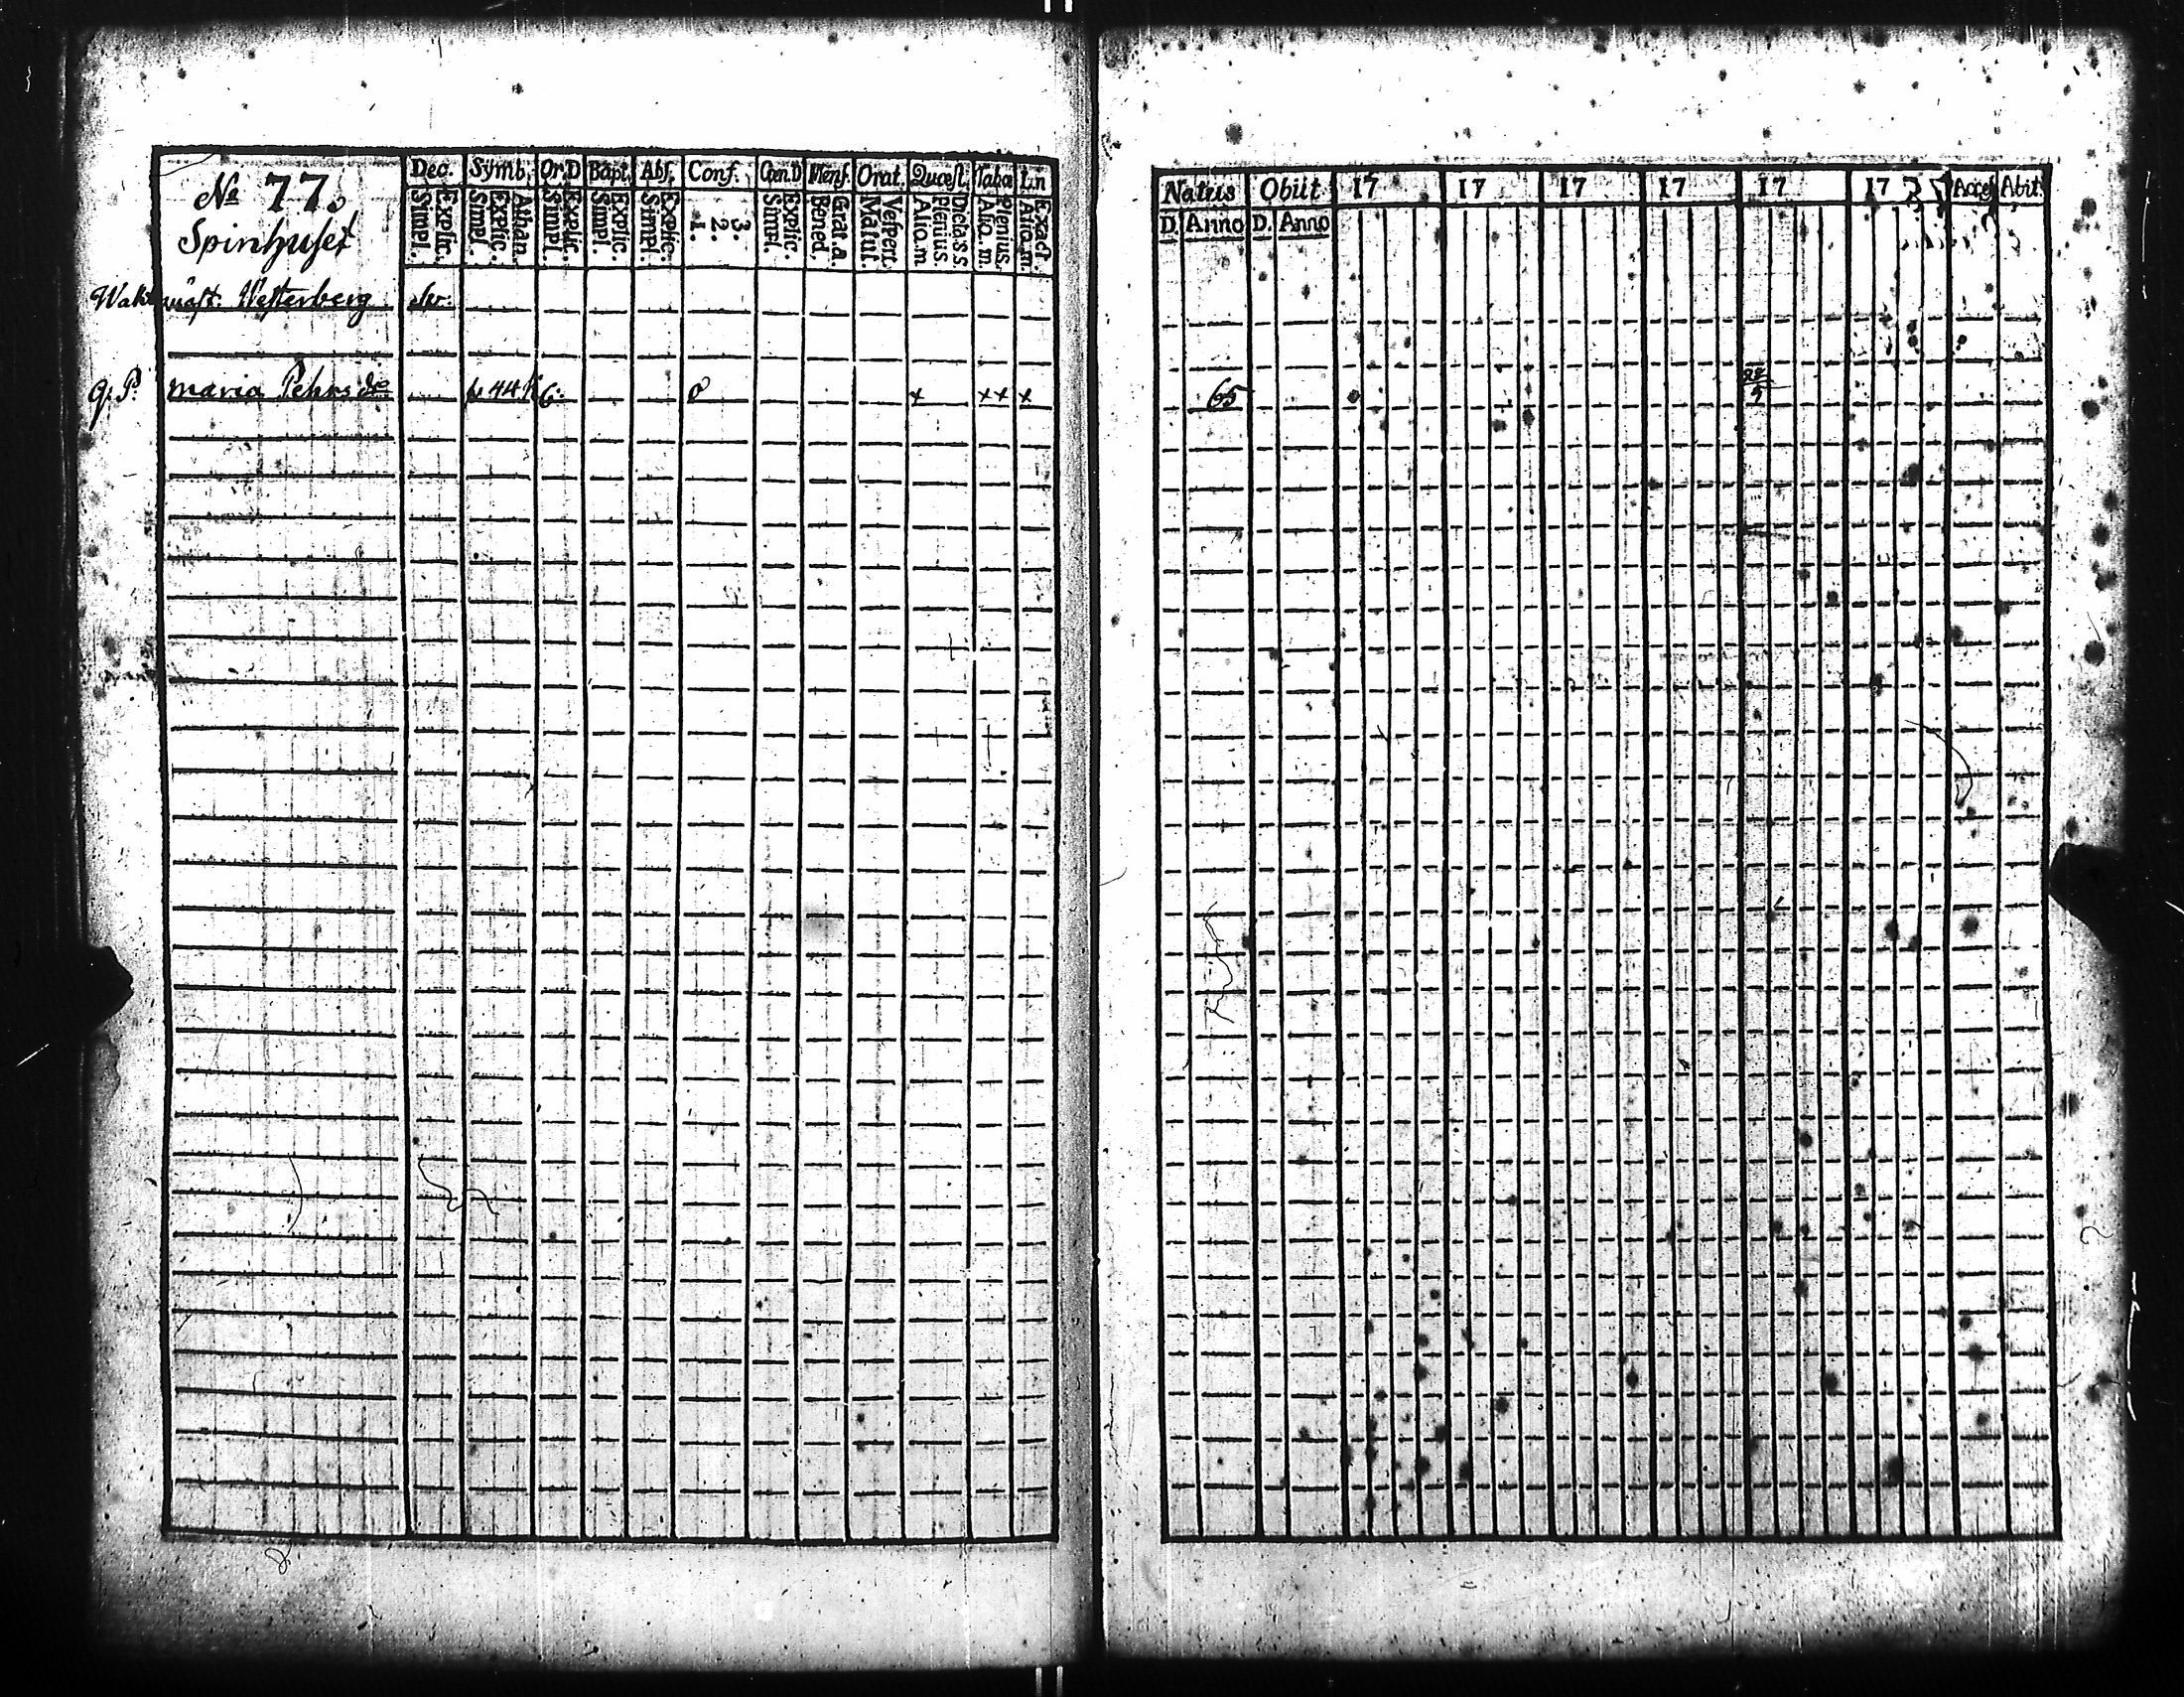 No 77.
Spinhuset
Dec. Symb. Or.D Bapt. Abs. Conf. Cœn.D Mens. Orat. Quæst. Tabœ Lin
Explic. Simpl. Athan. Explic. Simpl. Explic. Simpl. Explic. Simpl. Explic. Simpl. 3. 2. 1. Explic. Simpl. Grat. a. Bened. Vespert. Matut. Dicta S.S. plenius. Aliq.m Plenius. Aliq.m. Exact. Aliq.m.
Wakt mäst. Westerberg
q. P. maria Pehrs dr 6 x xx x
Natus Obiit 17 17 17 17 17 17 Acceſ Abit.
D. Anno D. Anno
65